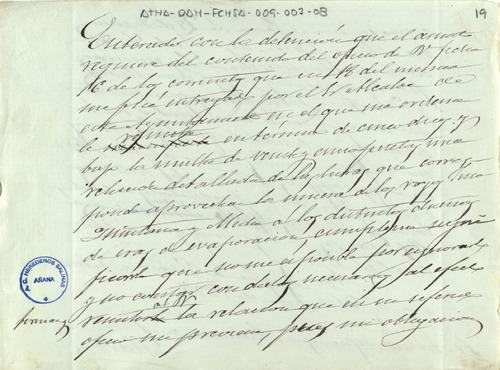 ATHA-DAH-FCHSA-009-007-08
19
Enterado con la detención que el asunto
requiere del contenido del oficio de V. fecha
16 de los corrientes que en 18 del mismo
me fué entregado por el Sr Alcalde de
este Ayuntamiento en el que me ordena
le remita en termino de cinco dias y
bajo la multa de veinte y cinco pesetas, una
relación detallada de las horas que corres
ponde aprovechar la muera de los royos
Quintana y Media á los distintos dueños
de eras de evaporación, cumpleme signi
ficarle que no me es posible por ignorarlo
y no constar con datos necesarios al efecto
remitir á V. la relación que en su referido
oficio me previene, pues mi obligación
G. HEREDEROS SALINAS
AÑANA